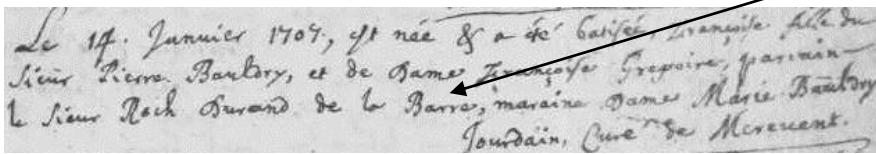 Le 14. Janvier 1707, est née & a été batisée, Françoise fille du
Sieur Pierre Bauldry, et de Dame Françoise Gregoire, parrain
le Sieur Roch Durand de la Barre, maraine Dame Marie Bauldry
Jourdain, Curé de Merevent.